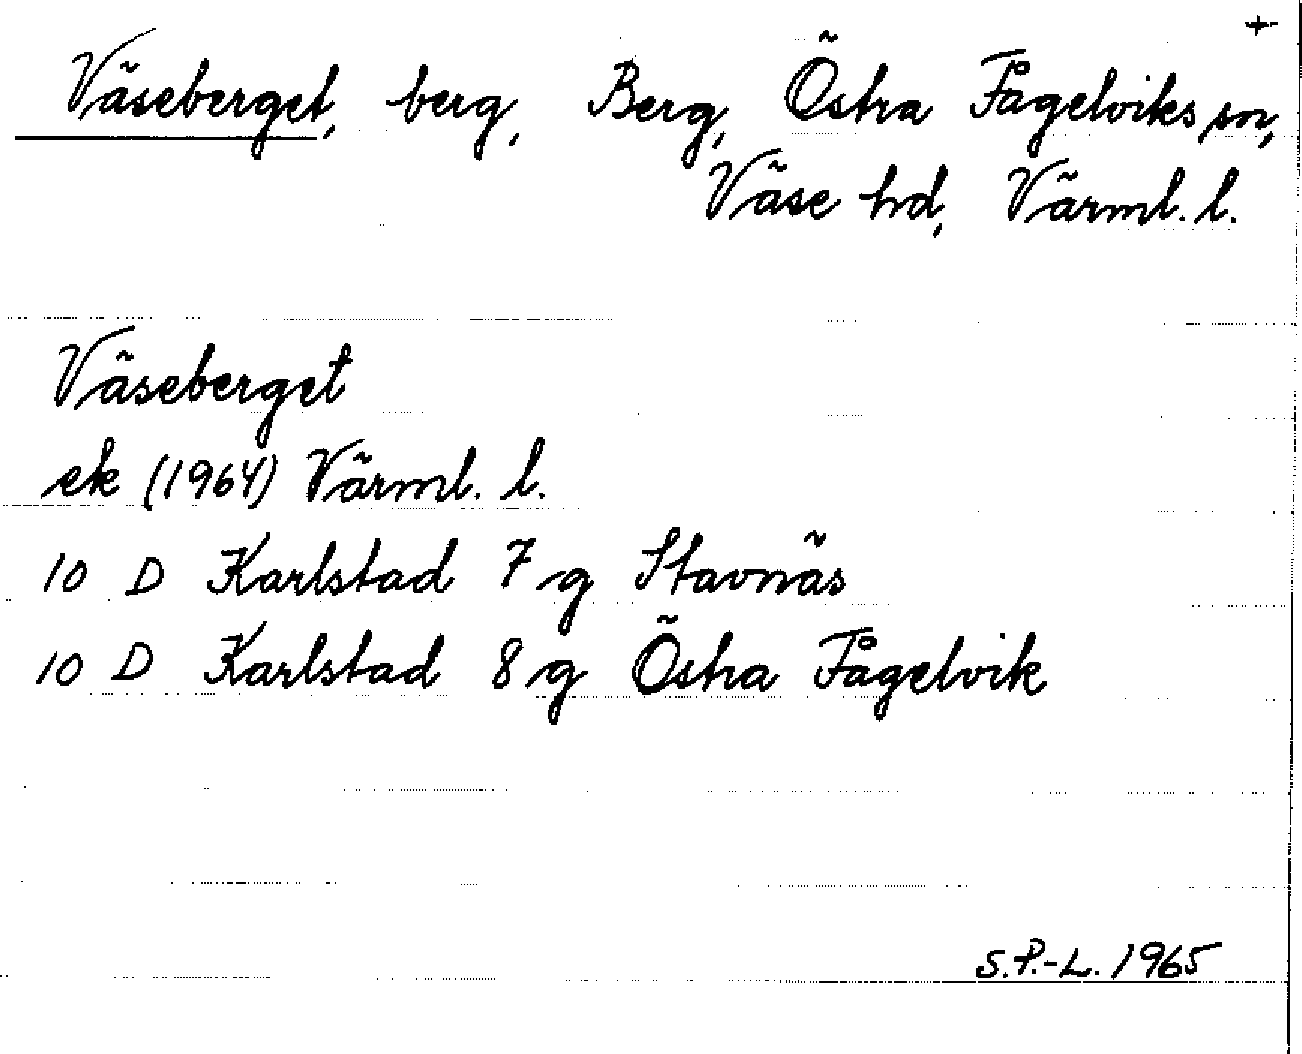 +
Väseberget, berg, Berg, Östra Fågelviks sn,
Väse hd, Värml. l.
Väseberget
ek (1964) Värml. l.
10 D Karlstad 7 g Stavnäs
10 D Karlstad 8 g Östra Fågelvik
S.P.-L. 1965